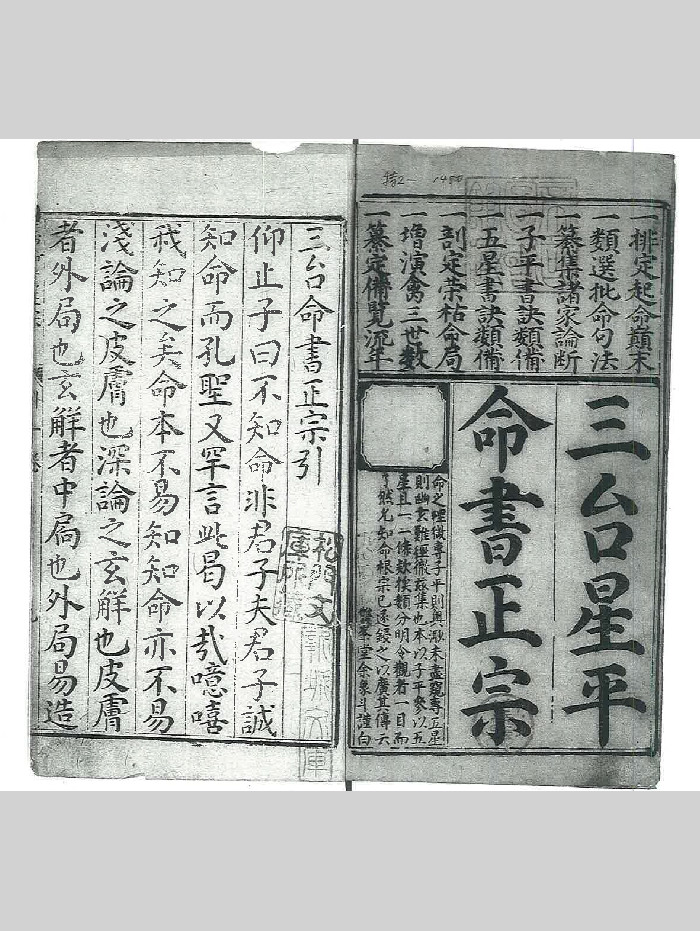 一排定起命巔末
一類選批命句法
一纂集諸家論斷
一子平書訣類備
一五星書訣類備
一剖定荣枯命局
一增演禽三世數
一纂定備覧流年
三台星平
命書正宗
命之理微專子平則輿淵未盡窺專五星
則幽玄難徹集也本以子平參以五
星且一一條款様類分明令觀者一目而
了然允如命根宗已遂鋟之以廣其傳云
雙峯堂余象斗謹白
三台命書正宗引
仰止子曰不知命非君子夫君子誠
知命而孔聖又罕言此曷以哉噫嘻
我知之矣命本不易知知命亦不易
淺論之皮膚也深論之玄解也皮膚
者外局也玄解者中扄也外局易造
松門文
庫所藏